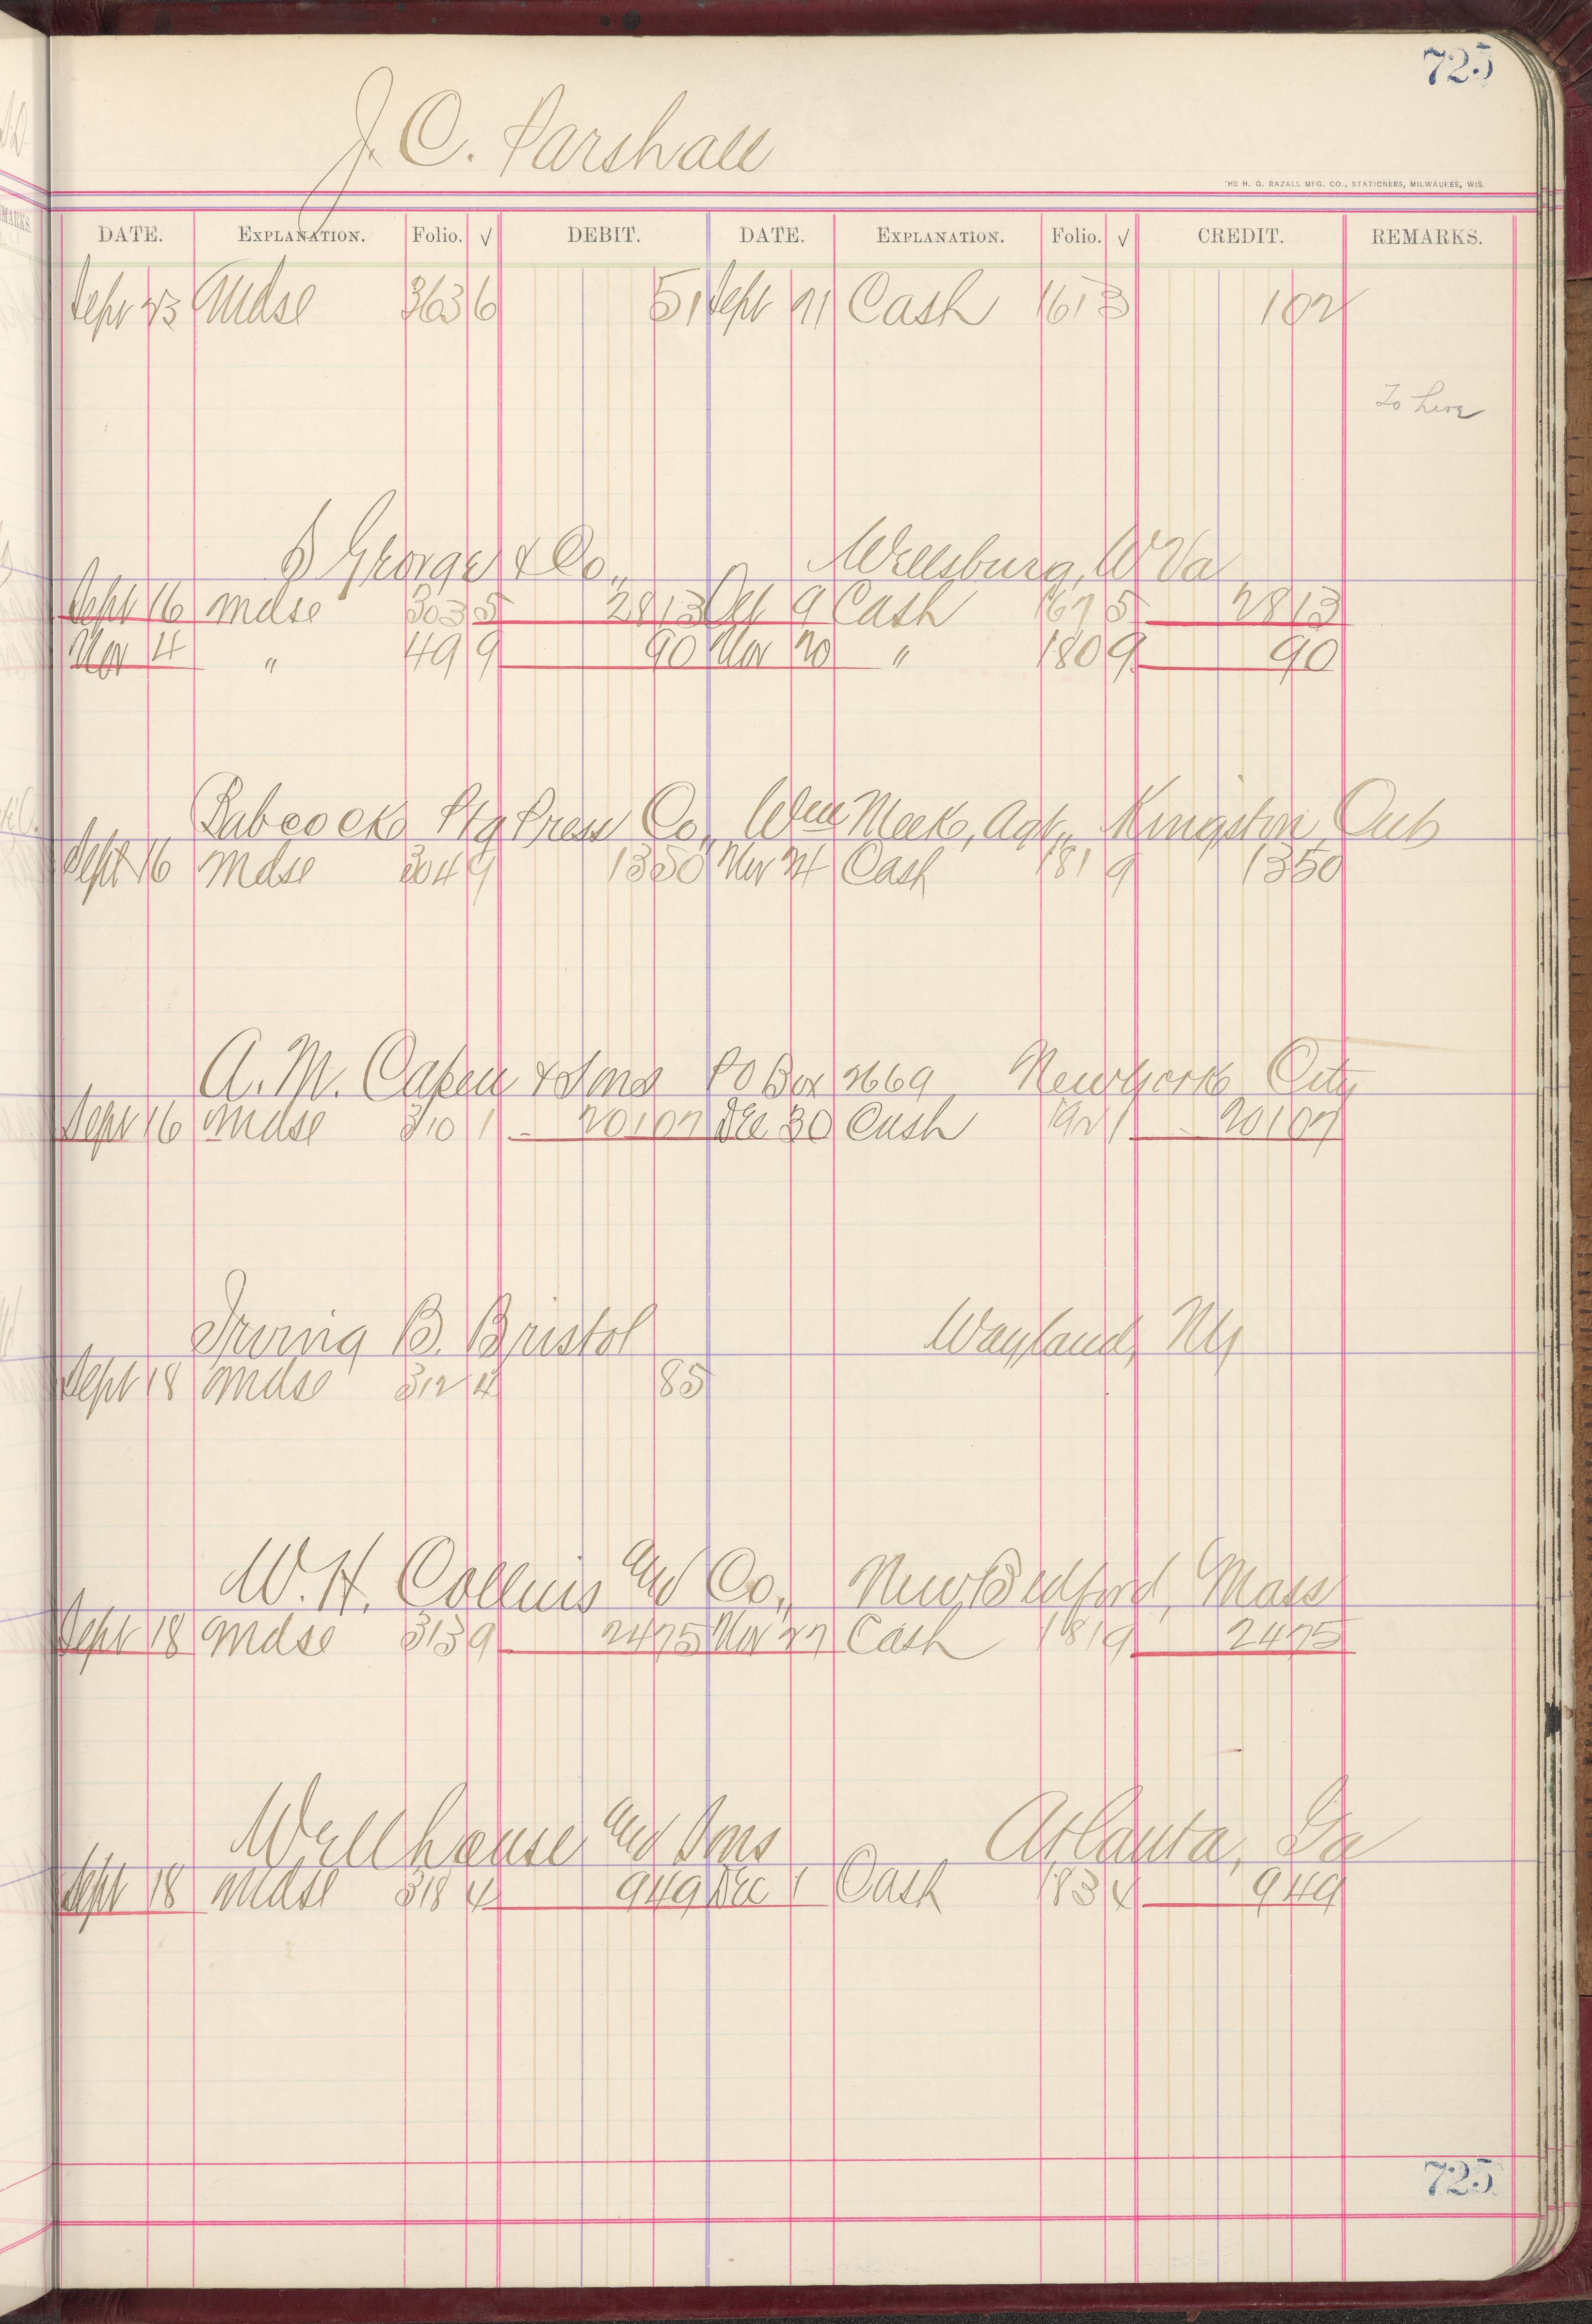 725
J. C. Parshall
THE H. G. RAZALL MFG. CO., STATIONERS, MILWAUKEE, WIS.
DATE. EXPLANATION. Folio. √ DEBIT. DATE. EXPLANATION. Folio. √ CREDIT. REMARKS.
Sept 23 Mdse 363 6 51 Sept 21 Cash 161 3 102
To Live
S George & Co., Wellsburg, W Va
Sept 16 Mdse 303 5 2813 Oct 9 Cash 167 5 2813
Nov 4 " 49 9 90 Nov 20 " 180 9 90
Babcock Ptg Press Co., Wm Meek, Agt., Kingston Cub
Sept 16 Mdse 304 9 1350 Nov 24 Cash 181 9 1350
A. M. Capen & Sons PO Box 2669 New York City
Sept 16 Mdse 310 1 20107 Dec 30 Cash 192 1 20107
Irving B. Bristol Wayland, NY
Sept 18 Mdse 312 4 85
W. H. Collins and Co., New Bedford, Mass
Sept 18 Mdse 313 9 2475 Nov 27 Cash 181 9 2475
Wellhouse and Sons Atlanta, Ga
Sept 18 Mdse 318 4 949 Dec 1 Cash 183 4 949
725